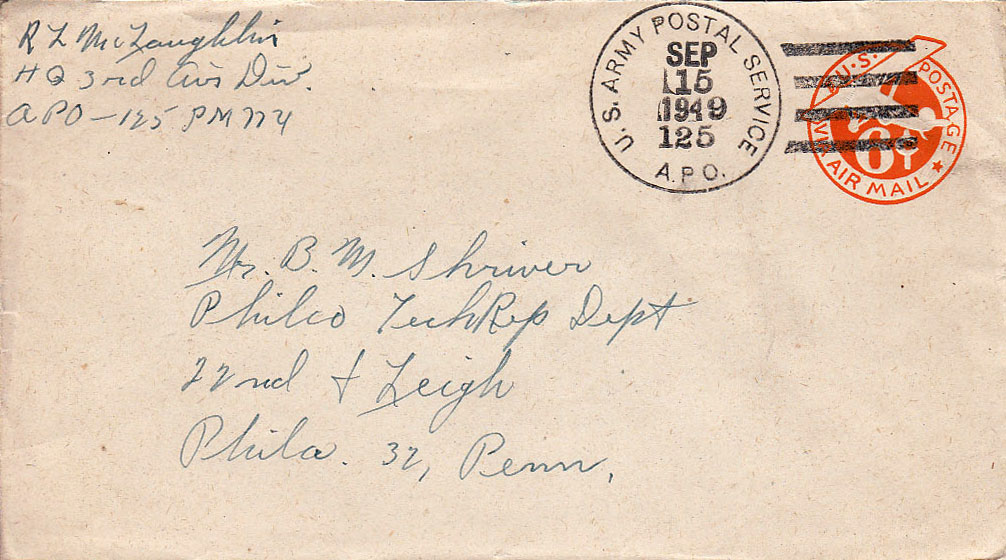 R L McLaughlin
HQ 3rd Air Div.
APO-125 PM NY
U.S. ARMY POSTAL SERVICE
SEP
15
1949
125
A.P.O.
U.S. POSTAGE
VIA AIR MAIL
6
Mr. B. M. Shriver
Philco TechRep Dept
22nd & Leigh
Phila. 32, Penn.